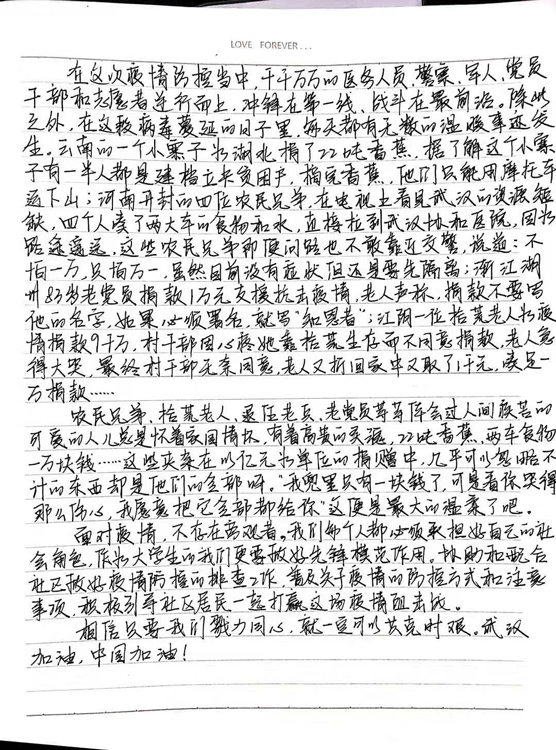 LOVE FOREVER...
在这次疫情防控当中，千千万万的医务人员、警察、军人、党员
干部和志愿者逆行而上，冲锋在第一线、战斗在最前沿。除此
之外，在这段病毒蔓延的日子里，每天都有无数的温暖事迹发
生。云南的一个小寨子为湖北捐了22吨香蕉，据了解这个小寨
子有一半人都是建档立卡贫困户，摘完香蕉，他们只能用摩托车
运下山；河南开封的四位农民兄弟，在电视上看见武汉的资源短
缺，四个人凑了两大车的食物和水，直接拉到武汉协和医院，因为
路途遥远，这些农民兄弟即便问路也不敢靠近交警，说道：不
怕一万，只怕万一，虽然目前没有症状但还是要先隔离；浙江湖
州83岁老党员捐款1万元支援抗击疫情，老人声称，捐款不要写
他的名字，如果必须署名，就写“知恩者”；江阴一位拾荒老人为疫
情捐款9千万，村干部因心疼她靠拾荒生存而不同意捐款，老人急
得大哭，最终村干部无奈同意，老人又折回家中又取了1千元，凑足一
万捐款……
农民兄弟，拾荒老人，退伍老兵，老党员等等体会过人间疾苦的
可爱的人儿总是怀着家国情怀，有着高贵的灵魂，22吨香蕉、两车食物
一万块钱……这些夹杂在以亿元为单位的捐赠中，几乎可以忽略不
计的东西却是他们的全部啊。“我兜里只有一块钱了，可是看你哭得
那么伤心，我愿意把它全部都给你”这便是最大的温柔了吧。
面对疫情，不存在旁观者。我们每个人都必须承担好自己的社
会角色，作为大学生的我们更要做好先锋模范作用。协助和配合
社区做好疫情防控的排查工作，普及关于疫情的防控方式和注意
事项，积极引导社区居民一起打赢这场疫情阻击战。
相信只要我们戮力同心，就一定可以共克时艰。武汉
加油，中国加油！